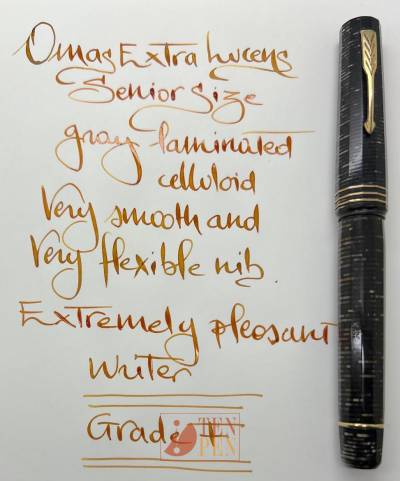 Omas Extra Lucens
Senior Size
gray laminated
celluloid
Very smooth and
Very flexible nib.
Extremely pleasant
Writer
Grade
TEN
PEN